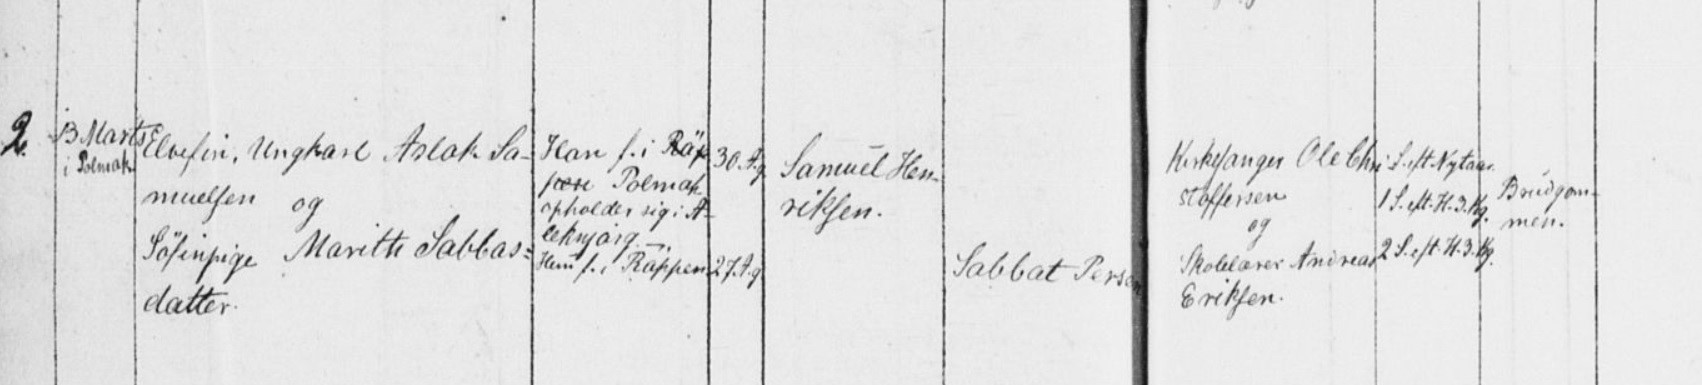 2.
13 Marts
i Polmak
Elvefin, Ungkarl Aslak Sa-
muelsen og
Söfinpige Marith Sabbas-
datter.
Han f. i Räp
pen Polmak
opholder sig i A-
leknjarg
Hun f. i Räppen
30. Ag
27. Ag
Samuel Hen-
riksen.
Sabbat Persen
Kirkesanger Ole Chri
stoffersen
og
Skolelærer Andreas
Eriksen.
S. eft. Nytaar
1 S. eft. H. 3. Kg.
2 S. eft. H. 3. Kg.
Brudgom-
men.